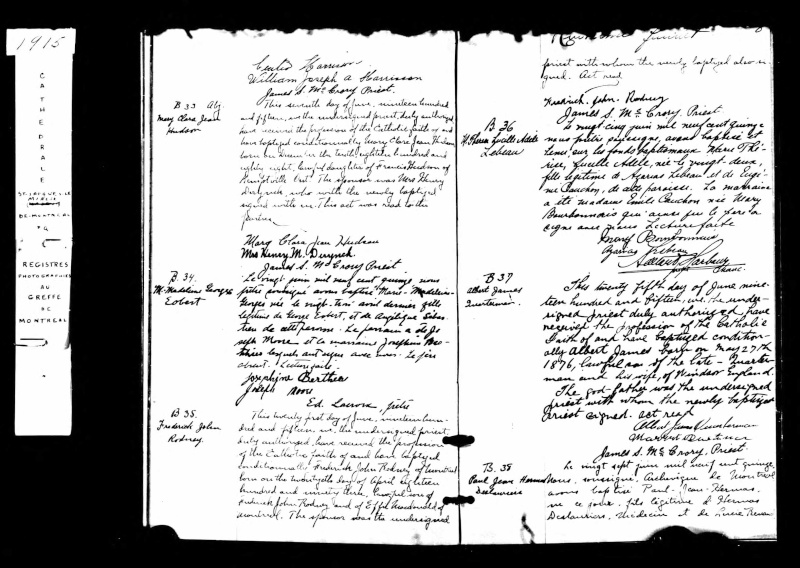 1915
CATHEDRALE
ST-JACQUES-LE-
MAJEUR
DE-MONTREAL
P Q
REGISTRES
PHOTOGRAPHIES
AU
GREFFE
DE
MONTREAL
Harrison
William Joseph A Harrisson
James S. McCrory Priest.
B 33 Abj.
Mary Clara Jean
Hudson
This seventh day of June, nineteen hundred
and fifteen, we the undersigned priest, duly authorized
have received the profession of the Catholic faith of and
have baptized conditionally Mary Clara Jean Hudson
born in the tenth eighteen hundred and
eighty eight, lawful daughter of Francis Hudson of
Ont. The sponsor was Mrs Henry
who with the newly baptized
signed with us. This act was read to the
parties.
Mary Clara Jean Hudson
Mrs Henry M.
James S. McCrory Priest.
B 34
M. Madeleine Georges
Eobert
Le vingt juin mil neuf cent quinze nous
prêtre soussigné avons baptisé Marie-Madeleine
Georges née le vingt-trois avril dernier fille
légitime de George Eobert, et de Angélique
de cette paroisse. Le parrain a été Jo
seph More et la marraine Josephine Ber
lesquels ont signé avec nous. Le père
absent. Lecture faite.
Josephine Berthier
Joseph More
Ed Lacroix, ptre
B 35.
Frederick John
Rodney.
This twenty first day of June, nineteen hun
dred and fifteen, we the undersigned priest
duly authorized, have received the profession
of the Catholic faith of and have baptized
conditionally Frederick John Rodney of Montreal
born on the twentyeth day of April eighteen
hundred and ninety three, lawful son of
Frederick John Rodney and of Effie Macdonald of
Montreal. The sponsor was the undersigned
priest with whom the newly baptized also si-
gned. Act read
Fredrick. John. Rodney
James S. McCrory. Priest
B 36
M. Lucille Adèle
Lebeau
Le vingt cinq juin mil neuf cent quinze
nous prêtre soussigné, avons baptisé et
tenu sur les fonds baptismaux Marie Thé
rèse, Lucille Adèle, née le vingt-deux,
fille légitime de Azarias Lebeau et de Eugé-
nie Cauchon, de cette paroisse. La marraine
a été madame Emile Cauchon née Mary
Bourbonnais qui ainsi que le père a
signé avec nous Lecture faite
Mary Bourbonnais
Azarias Lebeau
Adélard Harbour
B 37
Albert James
Quarterman.
This twenty fifth day of June nine-
teen hundred and fifteen, we the under-
signed priest duly authorized have
received the profession of the Catholic
Faith of and have baptized condition-
ally Albert James born on May 27th
1876, lawful son of the late - Quarter
man and his wife, of Windsor England.
The god-father was the undersigned
priest with whom the newly baptized
Priest signed. act read
Albert James Quarterman
James S. McCrory. Priest.
B. 38
Paul Jean Hermas
Deslauriers
Le vingt sept juin mil neuf cent quinze,
Nous, soussigné, Archevêque de Montréal
avons baptisé Paul-Jean-Hermas,
né ce jour, fils légitime d'Hermas
Deslauriers, Médecin et de